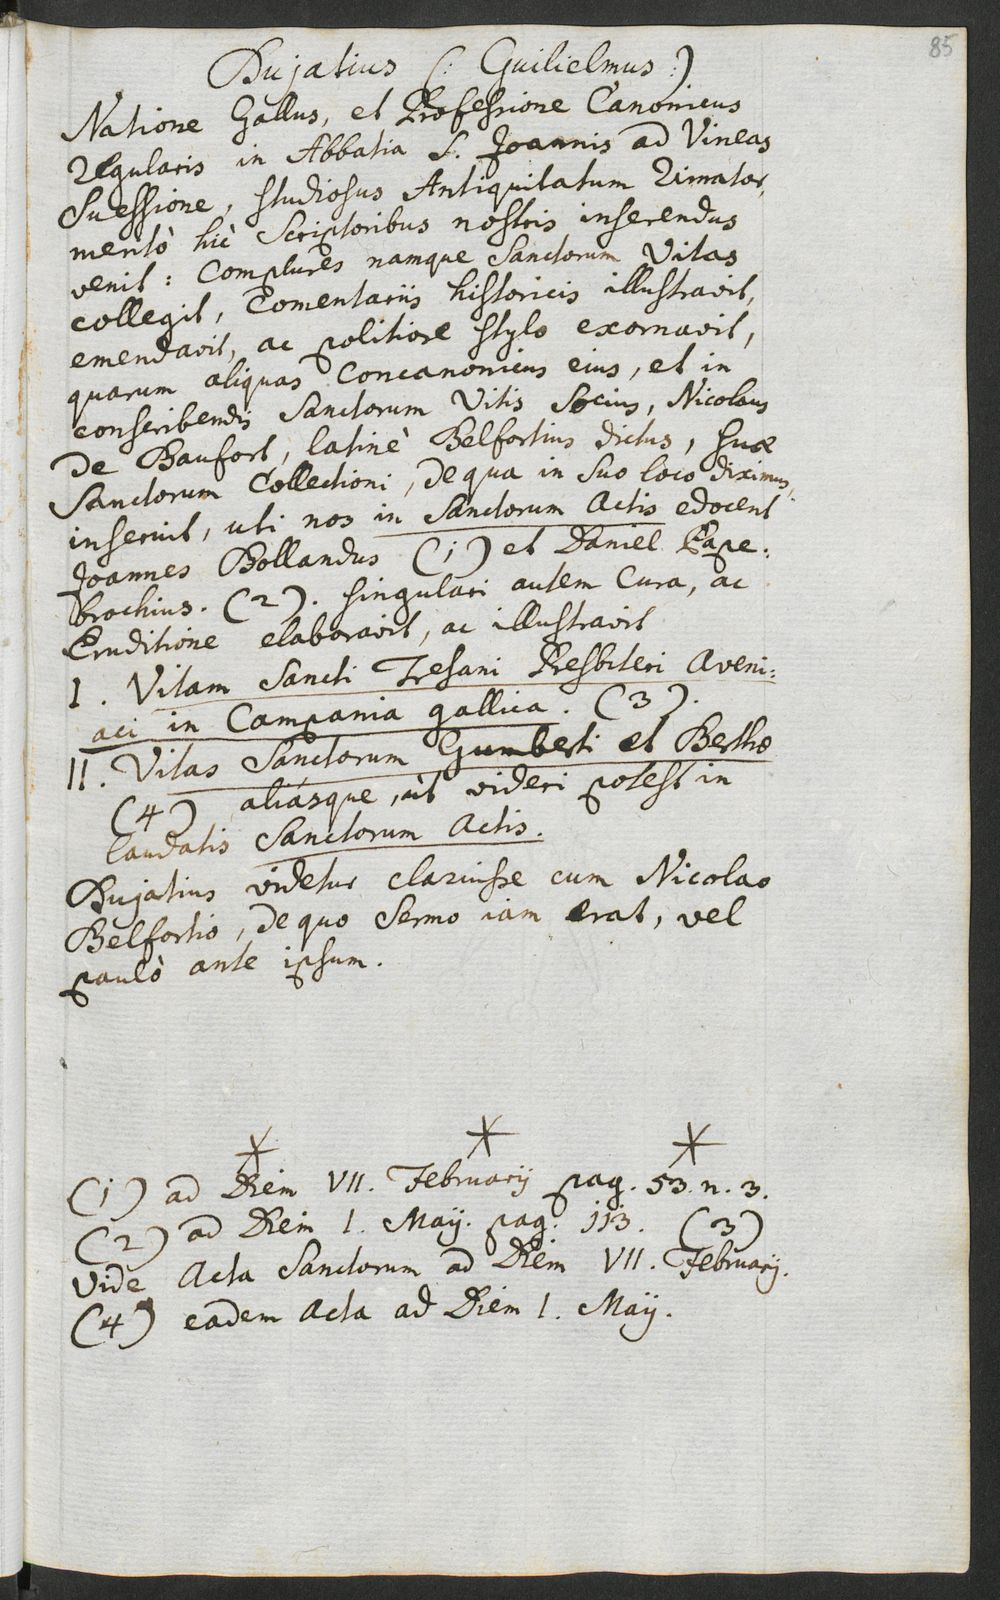 85
Bujatius (: Guilielmus :)
Natione Gallus, et Professione Canonicus
regularis in Abbatia S. Joannis ad Vineas
Suessione, studiosus Antiquitatum Rimator,
meritò hìc Scriptoribus nostris inserendus
venit: Complures namque Sanctorum Vitas
collegit, Comentariis historicis illustravit,
emendavit, ac politiore stylo exornavit,
quarum aliquas Concanonicus eius, et in
conscribendis Sanctorum Vitis Socius, Nicolaus
De Baufort, latinè Belfortius dictus, suæ
Sanctorum Collectioni, de qua in suo loco diximus,
inseruit, uti nos in Sanctorum Actis edocent
Joannes Bollandus (1) et Daniel Pape:
brochius. (2). singulari autem Cura, ac
Eruditione elaboravit, ac illustravit
I. Vitam Sancti Tresani Presbiteri Aveni:
aci in Campania gallica. (3).
II. Vitas Sanctorum Gumberti et Berthæ
(4), aliasque, ut videri potest in
laudatis Sanctorum Actis.
Bujatius videtur claruisse cum Nicolao
Belfortio, de quo Sermo iam erat, vel
paulò ante ipsum.
(1) ad Diem VII. Februarij pag. 53. n. 3.
(2) ad Diem I. Maij. pag. 113. (3)
vide Acta Sanctorum ad Diem VII. Februarij.
(4) eadem Acta ad Diem I. Maij.